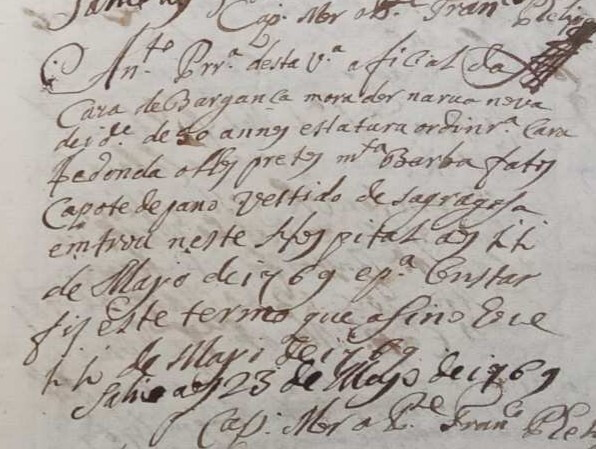 Cap. Mor o Pe. Franco
Anto. Prra. desta Va. oficial da
Caza de Bargança morador na rua nova
de ide. de 50 annos estatura ordinra. cara
Redonda olhos pretos mta Barba fatos
Capote de pano vestido de sagragosa
emtrou neste Hospital aos 11
de Mayo de 1769 e pa. Custar
fis este termo que asino Evie
11 de Mayo de 1769
Sahio aos 23 de Mayo de 1769
Cap. Mor o Pe. Franco